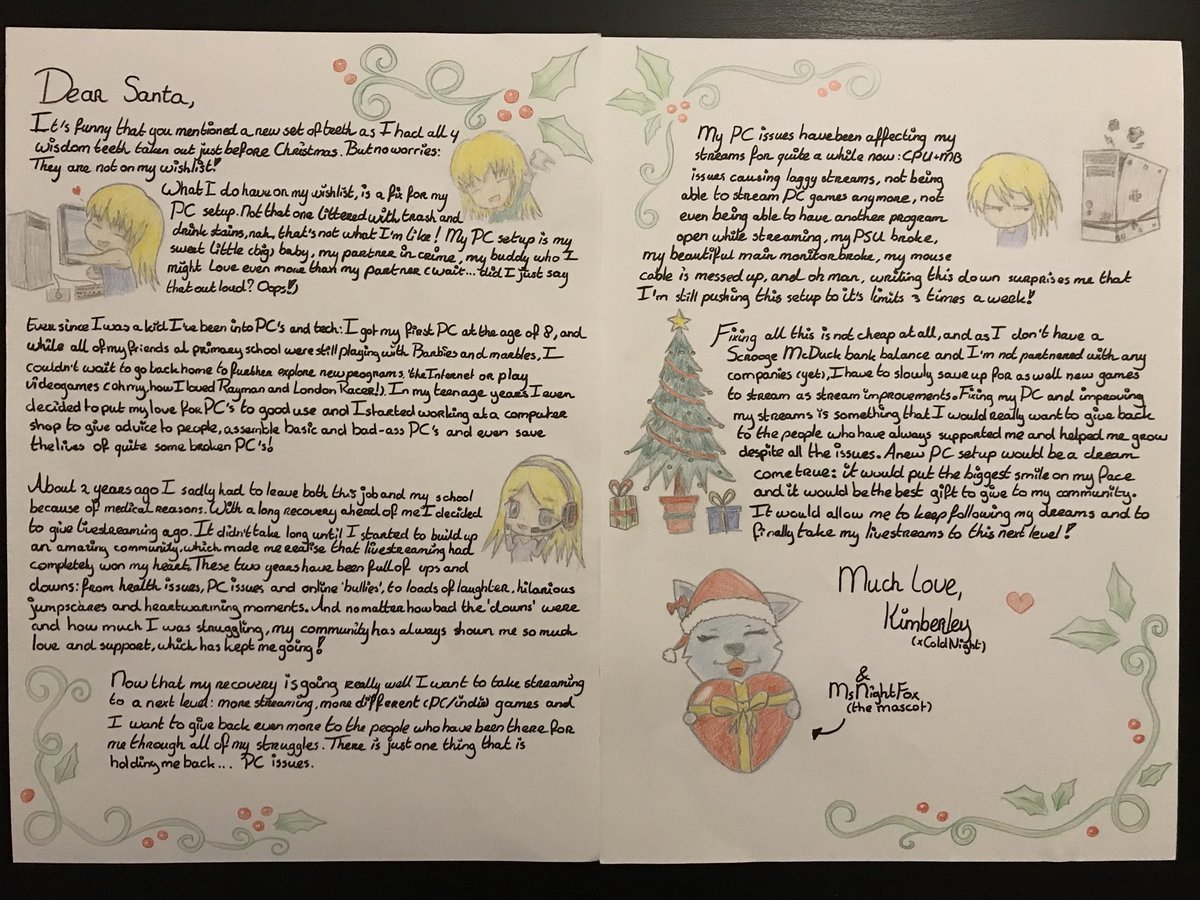 Dear Santa,
It's funny that you mentioned a new set of teeth as I had all 4
wisdom teeth taken out just before Christmas. But no worries:
They are not on my wishlist!
What I do have on my wishlist, is a fix for my
PC setup. Not that one littered with trash and
drink stains, nah, that's not what I'm like! My PC setup is my
sweet little (big) baby, my partner in crime, my buddy who I
might love even more than my partner (wait... did I just say
that out loud? Oops!)
Ever since I was a kid I've been into PC's and tech: I got my first PC at the age of 8, and
while all of my friends at primary school were still playing with Barbies and marbles, I
couldn't wait to go back home to further explore new programs, the Internet or play
videogames (oh my, how I loved Rayman and London Racer!). In my teenage years I even
decided to put my love for PC's to good use and I started working at a computer
shop to give advice to people, assemble basic and bad-ass PC's and even save
the lives of quite some broken PC's!
About 2 years ago I sadly had to leave both this job and my school
because of medical reasons. With a long recovery ahead of me I decided
to give livestreaming a go. It didn't take long until I started to build up
an amazing community, which made me realise that livestreaming had
completely won my heart. These two years have been full of ups and
downs: from health issues, PC issues and online 'bullies', to loads of laughter, hilarious
jumpscares and heartwarming moments. And no matter how bad the 'downs' were
and how much I was struggling, my community has always shown me so much
love and support, which has kept me going!
Now that my recovery is going really well I want to take streaming
to a next level: more streaming, more different (PC/indie) games and
I want to give back even more to the people who have been there for
me through all of my struggles. There is just one thing that is
holding me back... PC issues.
My PC issues have been affecting my
streams for quite a while now: CPU+MB
issues causing laggy streams, not being
able to stream PC games anymore, not
even being able to have another program
open while streaming, my PSU broke,
my beautiful main monitor broke, my mouse
cable is messed up, and oh man, writing this down surprises me that
I'm still pushing this setup to it's limits 3 times a week!
Fixing all this is not cheap at all, and as I don't have a
Scrooge McDuck bank balance and I'm not partnered with any
companies (yet), I have to slowly save up for as well new games
to stream as stream improvements. Fixing my PC and improving
my streams is something that I would really want to give back
to the people who have always supported me and helped me grow
despite all the issues. A new PC setup would be a dream
come true: it would put the biggest smile on my face
and it would be the best gift to give to my community.
It would allow me to keep following my dreams and to
finally take my livestreams to this next level!
Much love,
Kimberley
(xColdNight)
&
MsNightFox
(the mascot)